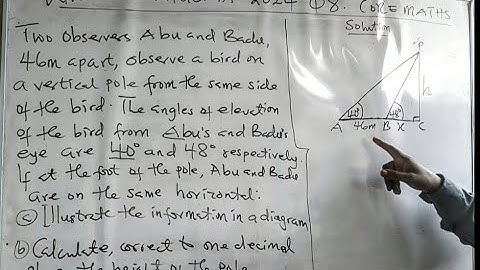 2024 Q8. CORE MATHS
Two Observers Abu and Badu,
46m apart, observe a bird on
a vertical pole from the same side
of the bird. The angles of elevation
of the bird from Abu's and Badu's
eye are 40° and 48° respectively.
If at the foot of the pole, Abu and Badu
are on the same horizontal:
(a) Illustrate the information in a diagram
(b) Calculate, correct to one decimal
the height of the pole
Solution
P
h
40°
48°
A 46m B X C